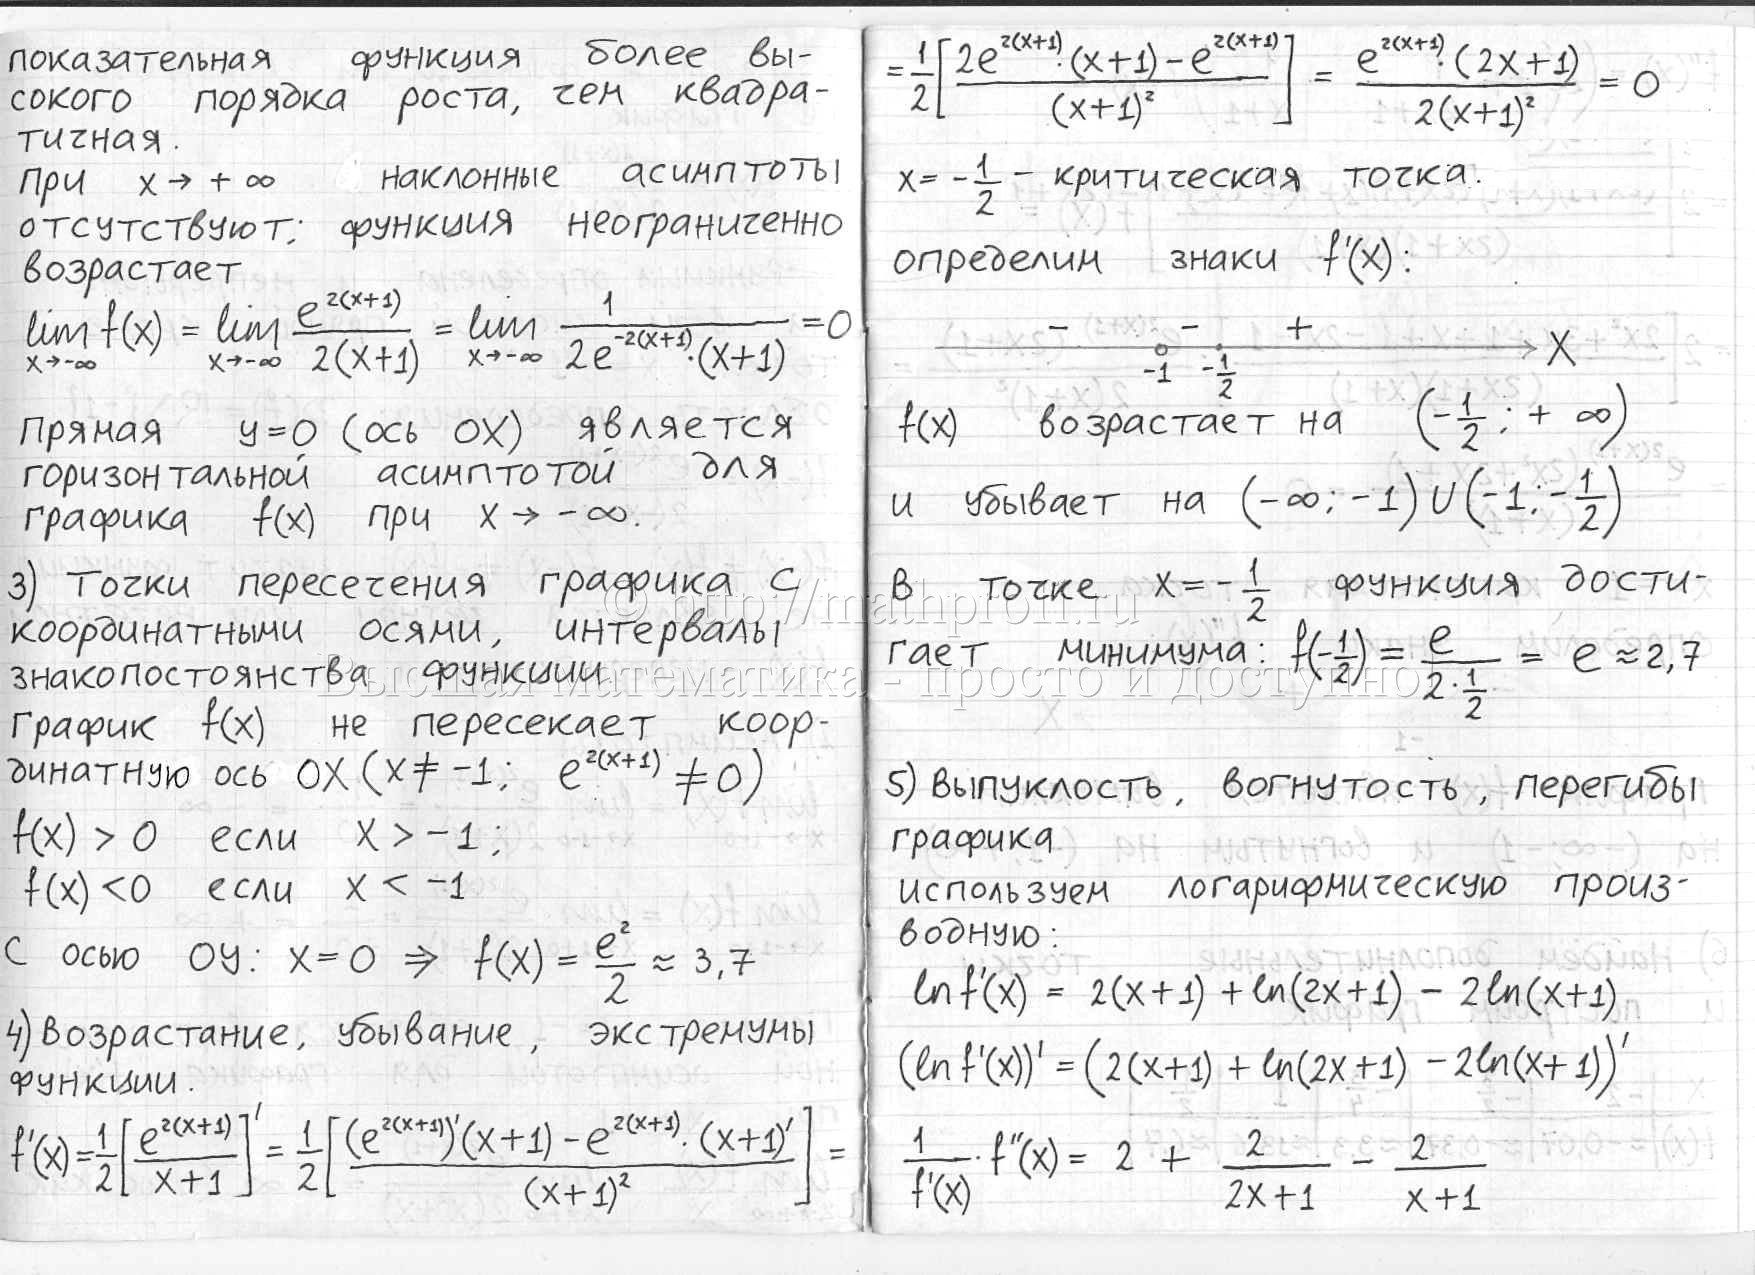 показательная функция более вы-
сокого порядка роста, чем квадра-
тичная.
При x → + ∞ наклонные асимптоты
отсутствуют; функция неограниченно
возрастает
lim f(x) = lim e^{2(x+1)} / 2(x+1) = lim 1 / (2e^{-2(x+1)}·(x+1)) = 0
x→-∞ x→-∞ x→-∞
Прямая y=0 (ось OX) является
горизонтальной асимптотой для
графика f(x) при x → -∞.
3) Точки пересечения графика с
координатными осями, интервалы
знакопостоянства функции
График f(x) не пересекает коор-
динатную ось OX (x ≠ -1; e^{2(x+1)} ≠ 0)
f(x) > 0 если x > -1;
f(x) < 0 если x < -1
С осью OY: x=0 ⇒ f(x) = e²/2 ≈ 3,7
4) Возрастание, убывание, экстремумы
функции.
f'(x) = 1/2 [e^{2(x+1)} / (x+1)]' = 1/2 [((e^{2(x+1)})'(x+1) - e^{2(x+1)}·(x+1)') / (x+1)²] =
= 1/2 [(2e^{2(x+1)}·(x+1) - e^{2(x+1)}) / (x+1)²] = e^{2(x+1)}·(2x+1) / 2(x+1)² = 0
x = -1/2 - критическая точка.
определим знаки f'(x):
- - +
-1 -1/2 X
f(x) возрастает на (-1/2; + ∞)
и убывает на (-∞; -1) U (-1; -1/2)
В точке x = -1/2 функция дости-
гает минимума: f(-1/2) = e / (2·1/2) = e ≈ 2,7
5) Выпуклость, вогнутость, перегибы
графика
используем логарифмическую произ-
водную:
ln f'(x) = 2(x+1) + ln(2x+1) - 2ln(x+1)
(ln f'(x))' = (2(x+1) + ln(2x+1) - 2ln(x+1))'
1/f'(x) · f''(x) = 2 + 2/(2x+1) - 2/(x+1)
© http://mathprofi.ru
Высшая математика - просто и доступно